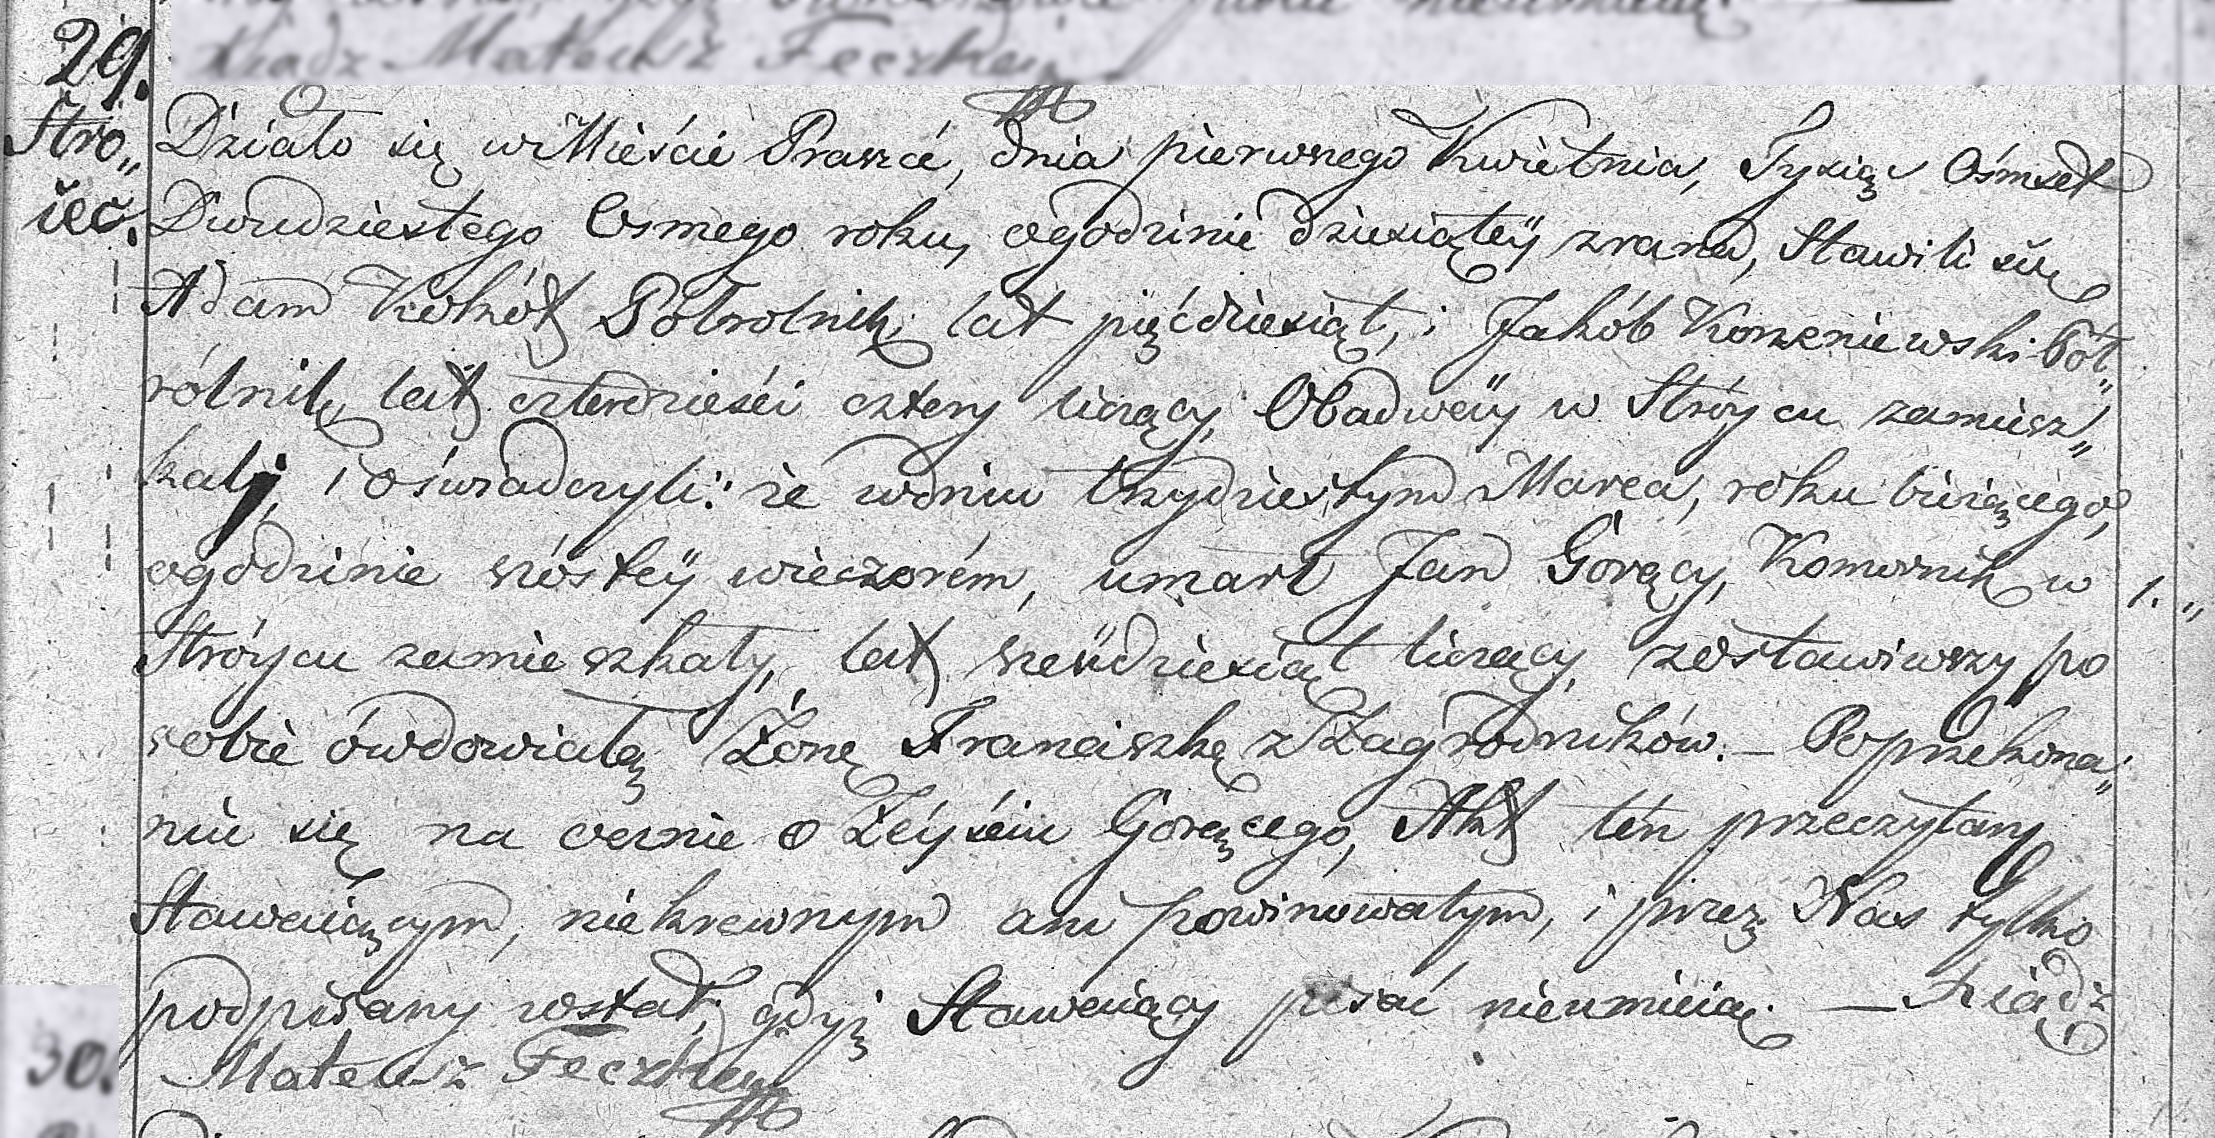 Ksiądz Mateusz
29.
Stro„
iec.
Działo się w Mieście Praszcé, dnia pierwszego Kwiétnia, Tysiąc Ośmset
Dwudziestego Osmego roku, o godzinie dziesiątéÿ zrana, Stawili się
Adam Kokót Półrolnik lat pięćdziesiąt, i Jakób Korzeniewski Pół„
rólnik, lat czterdzieści cztery liczący, Obadway w Stróycu zamiesz„
kali, i oświadczyli: że w dniu trzydziestym Marca, roku bieżącego,
o godzinie szóstéÿ wieczorém, umarł Jan Gorący, Komornik w
Stróycu zamieszkały, lat sześćdziesiąt liczący, zostawiwszy po
sobie ówdowiałą Żonę Franciszkę z Zagrodników. — Po przekona„
niu się na ocznie o Zéyściu Gorącego, Akt tén przeczytany
Stawaiącym, niekrewnym ani powinowatym, i przez Nas tylko
podpisany został, gdyż Stawaiący pisać nieumieią. — Ksiądz
Mateusz
1. „
30.